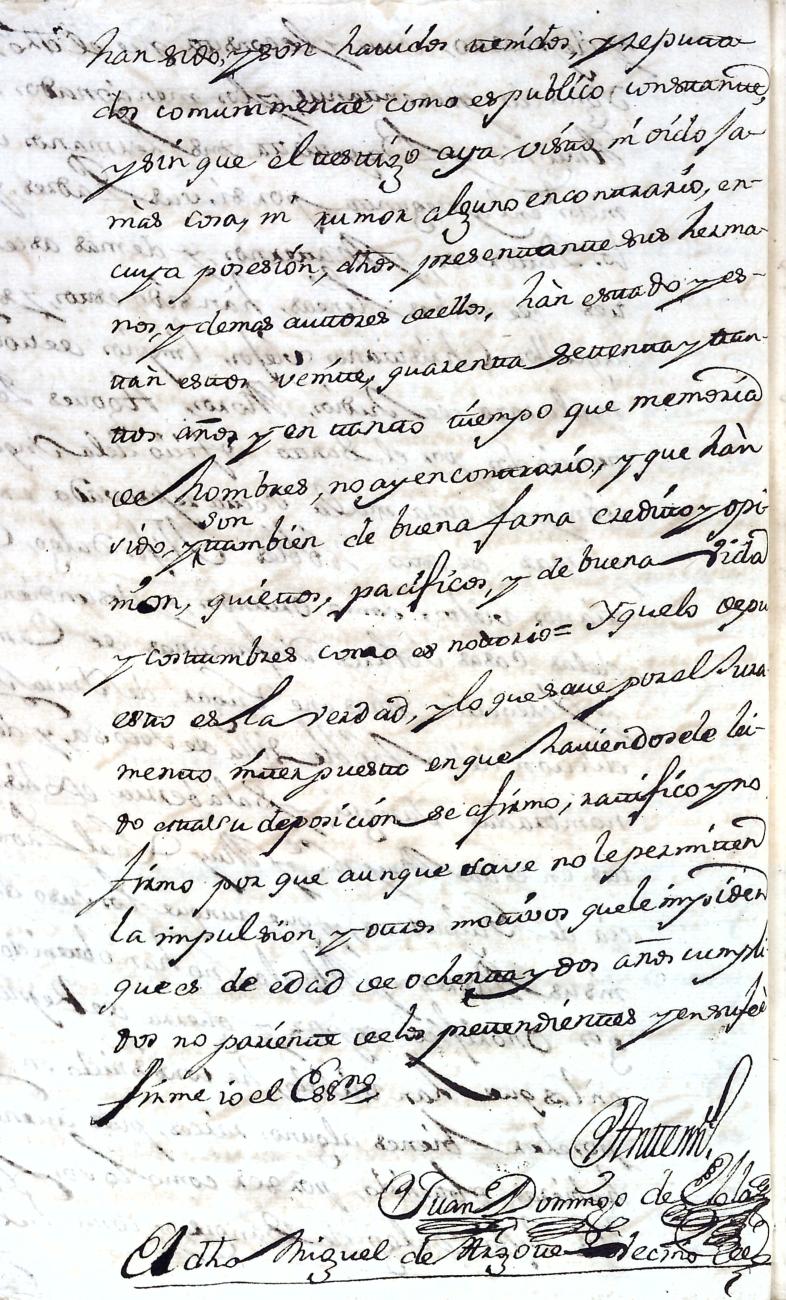 han sido, y son havidos tenidos, y reputta
dos comunmente como es publico constante,
y sin que el testigo aya visto ni oido Ja-
màs cosa, ni rumor alguno en contrario, en-
cuya posesión, dhos presentante sus herma-
nos, y demas auttores de ellos, hàn estado y es-
tàn estos veinte, quarenta settenta y tan-
tos años y en tanto tiempo que memoria
de hombres, no ay en contrario, y que hàn
sido, y son tambien de buena fama creditto y opi-
nion, quietos, pacificos, y de buena vida
y costumbres como es notorio = Y que lo depu
esto es la verdad, y lo que save por el Jura
mento interpuesto en que haviendosele lei-
do esta su deposición se afirmo, ratifico y no
firmo por que aunque save no le permiten
la impulsion, y otros motivos que le impiden
que es de edad de ochenta y dos años cumpli
dos no pariente de los pretendientes y en su feè
firme io el Essno
Antemi
Juan Domingo de
El dho Miguel de Vecino de